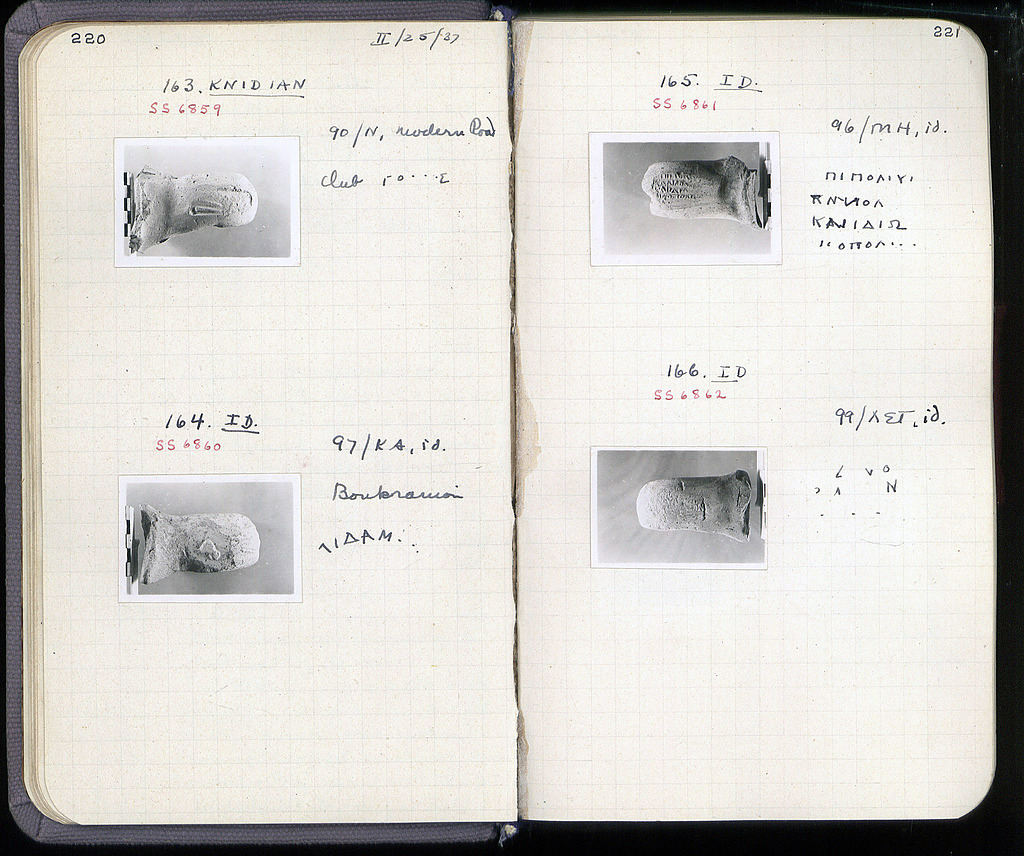 220
II/25/37
163. KNIDIAN
SS 6859
90/N, modern Road
club Γο····Σ
164. ID.
SS 6860
97/ΚΑ, id.
Boukranion
ΛΙΔΑΜ.
221
165. ID.
SS 6861
96/ΜΗ, id.
ΠΙΠΟΛΙΥΙ
ΚΝΥΠΟΛ
ΚΛΝΙΔΙΩ
ΚΟΠΟΛ···
166. ID
SS 6862
99/ΛΣΤ, id.